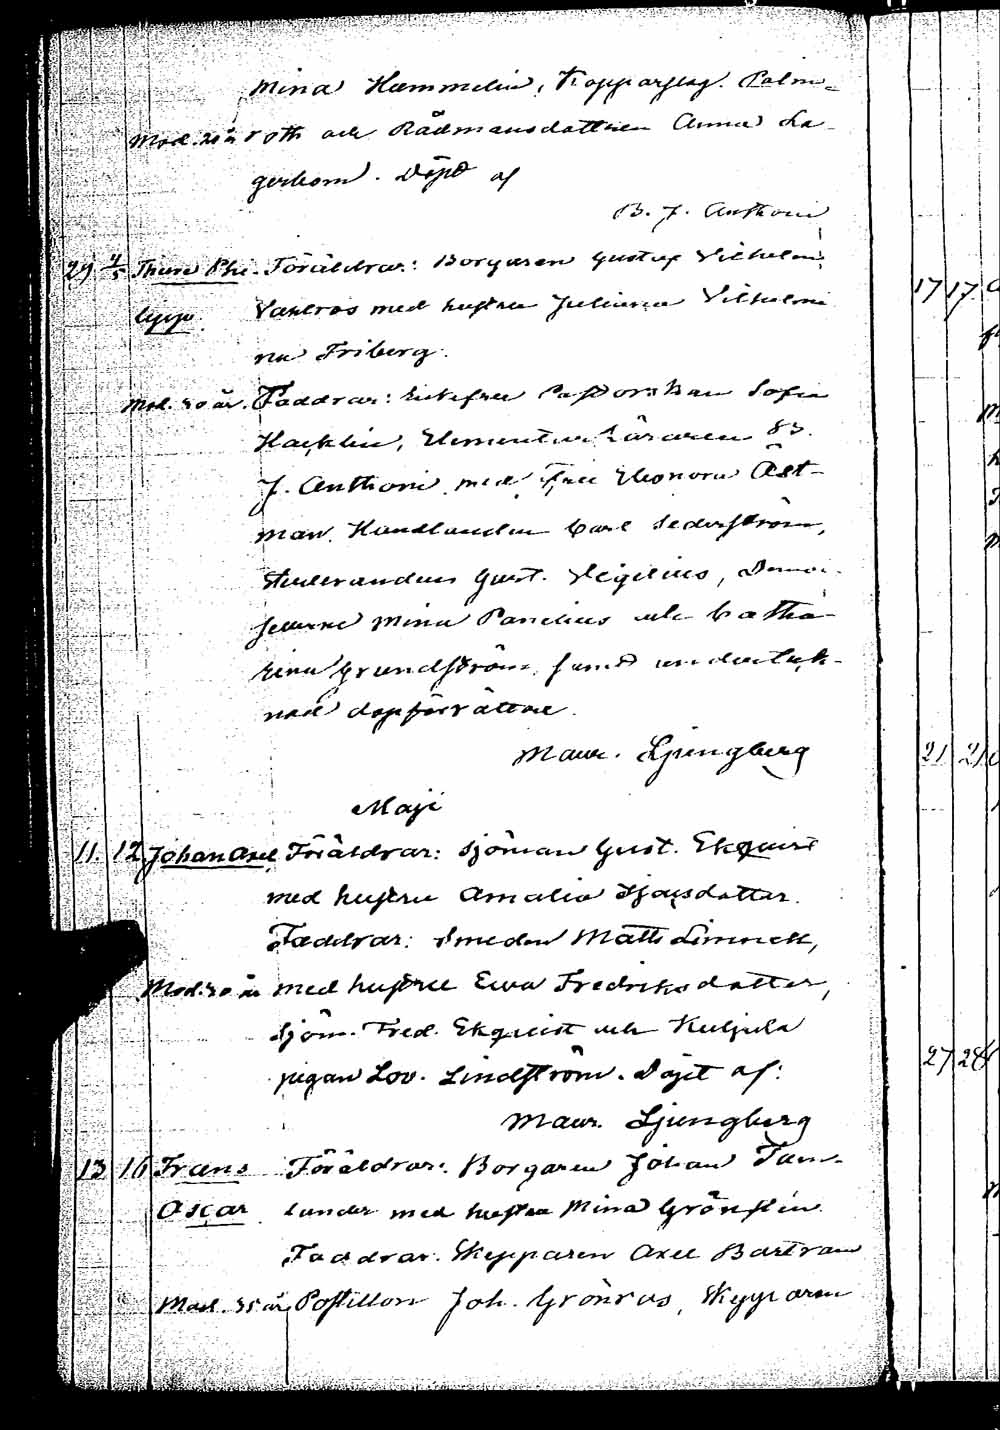 Mina Hammelin, Kopparslag. Palm-
Mod. 20 år roth och Rådmansdottren Anna La-
gerbom. Döpt af
B. J. Anthoni
29 4/5 Thure Phi- Föräldrar: Borgaren Gustaf Vilhelm
lipp. med hustru Juliana Vilhelmi
na Friberg.
Mod. 30 år. Faddrar: Enkefru Pastorskan Sofia
Elementar Läraren
J. Anthoni med Fru Eleonora Åst-
man, Handlanden Carl Sederström,
Studeranden Gust. Demoi-
sellerne Mina Pancheus och Catha-
rina Grundström samt underteck-
nad dopförrättare.
Maur. Ljungberg
Maji
11. 12. Johan Axel Föräldrar: Sjöman Gust. Ekquist
med hustru Amalia
Faddrar: Smeden Matts
Mod. 30 år med hustru Ewa Fredriksdotter,
Sjöm. Fred. Ekquist och
pigan Lov. Lindström. Döpt af:
Maur. Ljungberg
13 16 Frans Föräldrar: Borgaren Johan Tam-
Oscar lander med hustru Mina Grönstén
Faddrar: Skepparen Axel Bartram
Mod. 35 år Postillon Joh. Grönros, Skepparen
17 17
21 21
27 28